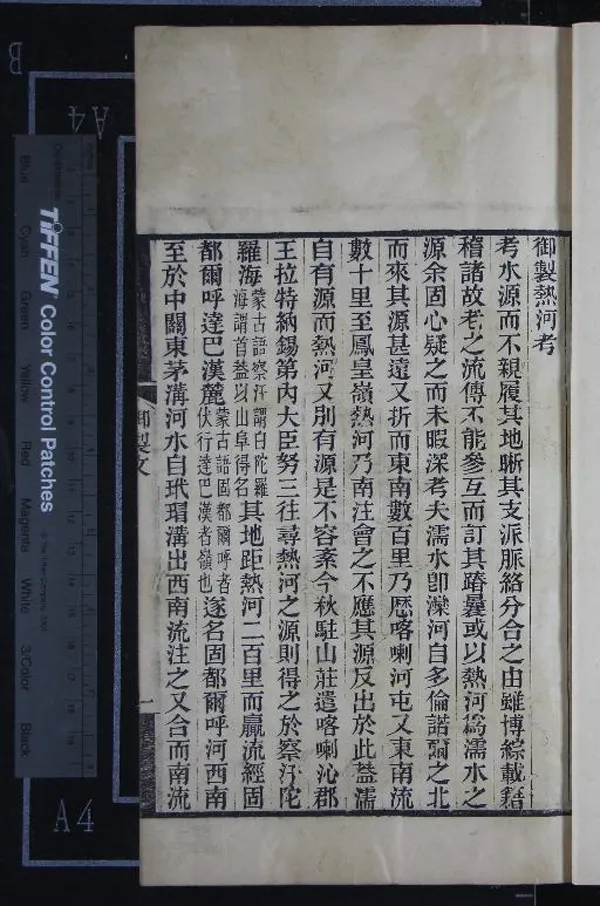 御製熱河考
考水源而不親履其地晰其支派脈絡分合之由雖博綜載籍
稽諸故老之流傳不能參互而訂其踳曩或以熱河爲濡水之
源余固心疑之而未暇深考夫濡水卽灤河自多倫諾爾之北
而來其源甚遠又折而東南數百里乃歴喀喇河屯又東南流
數十里至鳳皇嶺熱河乃南注會之不應其源反出於此葢濡
自有源而熱河又別有源是不容紊今秋駐山莊遣喀喇沁郡
王拉特納錫第內大臣努三往尋熱河之源則得之於察汗陀
羅海蒙古語察汗謂白陀羅海謂首葢以山阜得名其地距熱河二百里而贏流經固
都爾呼達巴漢麓蒙古語固都爾呼者伏行達巴漢者嶺也遂名固都爾呼河西南
至於中關東茅溝河水自玳瑁溝出西南流注之又合而南流
御製文
一
TIFFEN Color Control Patches
Blue
Cyan
Green
Yellow
Red
Magenta
White
3/Color
Black
A4
A4
B